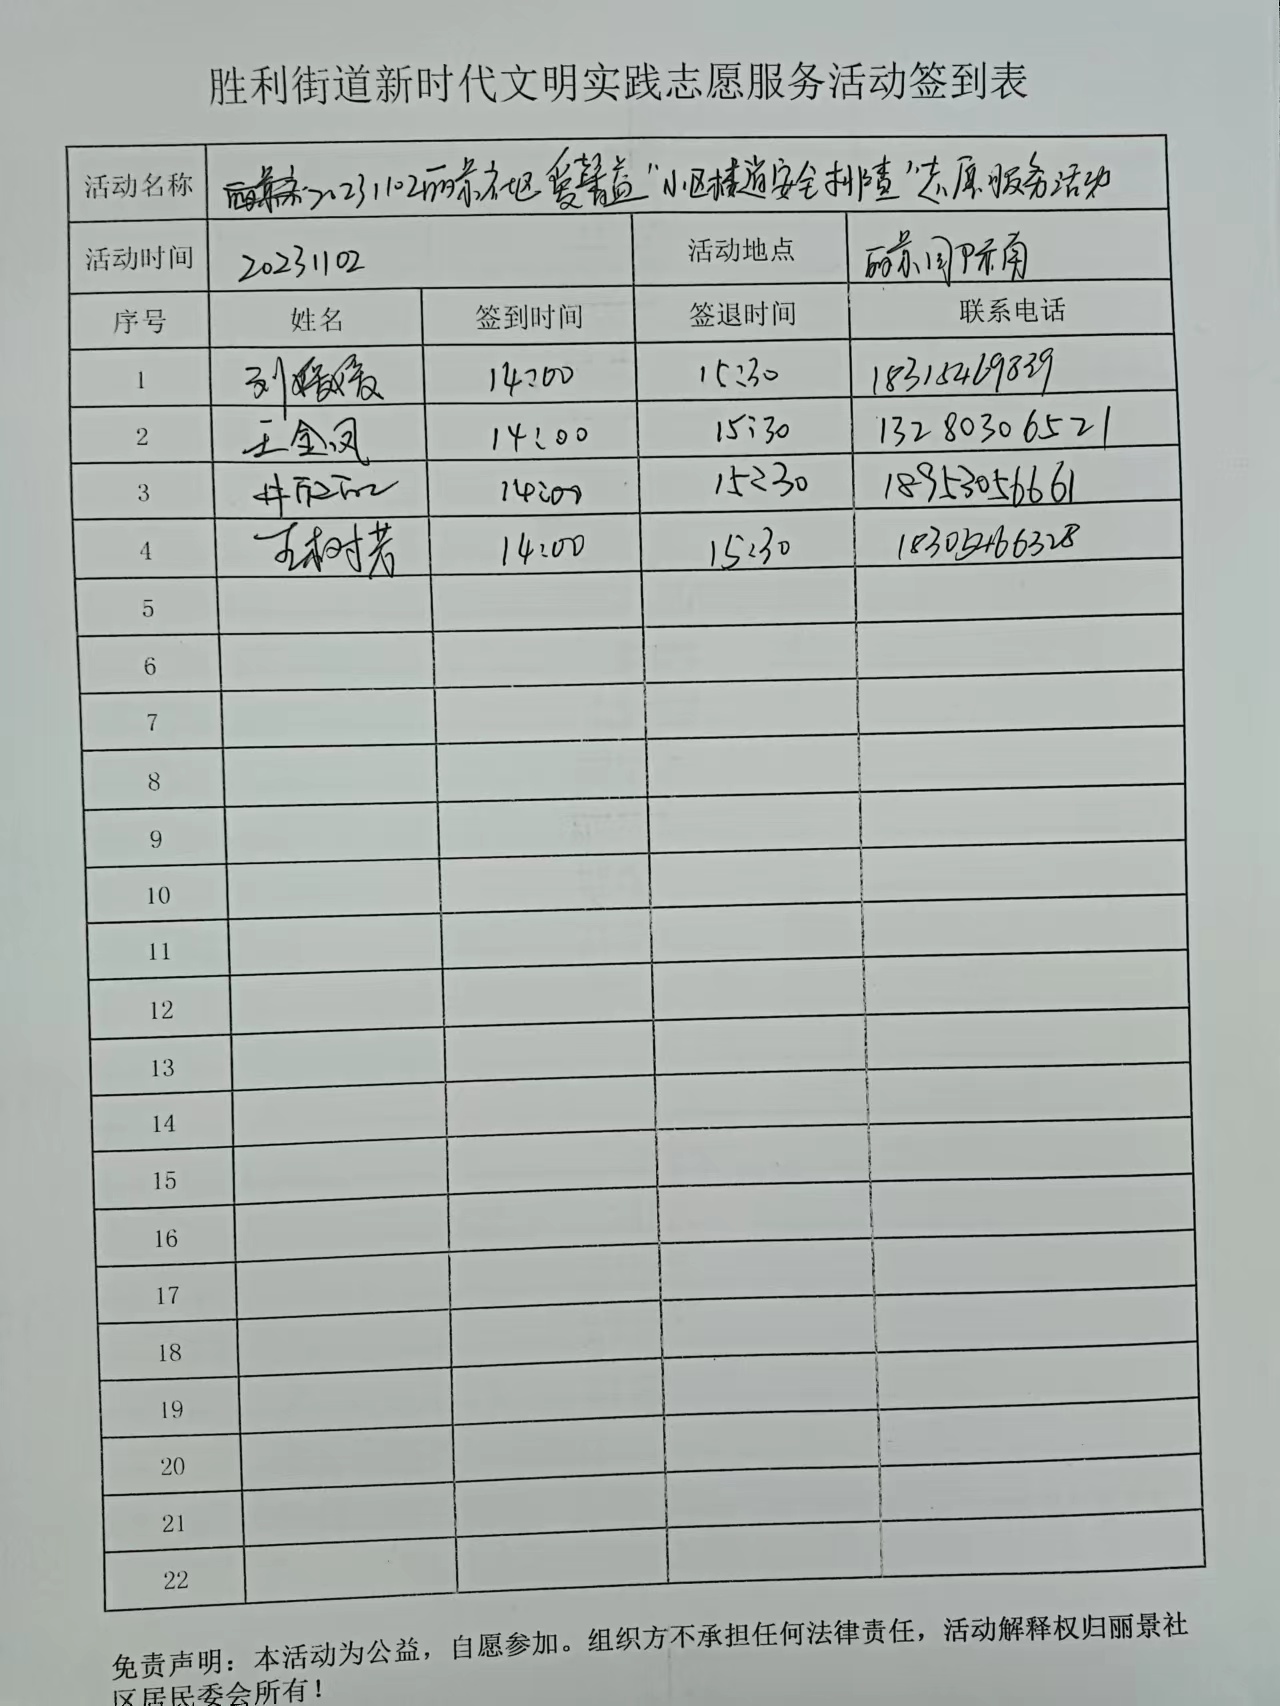 胜利街道新时代文明实践志愿服务活动签到表
活动名称 20231102丽景社区爱馨益“小区楼道安全排查”志愿服务活动
活动时间 20231102 活动地点 丽景
序号 姓名 签到时间 签退时间 联系电话
1 刘媛媛 14:00 15:30 18315469839
2 王金凤 14:00 15:30 13280306521
3 14:00 15:30 18953056661
4 王树芳 14:00 15:30
5
6
7
8
9
10
11
12
13
14
15
16
17
18
19
20
21
22
免责声明：本活动为公益，自愿参加。组织方不承担任何法律责任，活动解释权归丽景社
区居民委会所有！